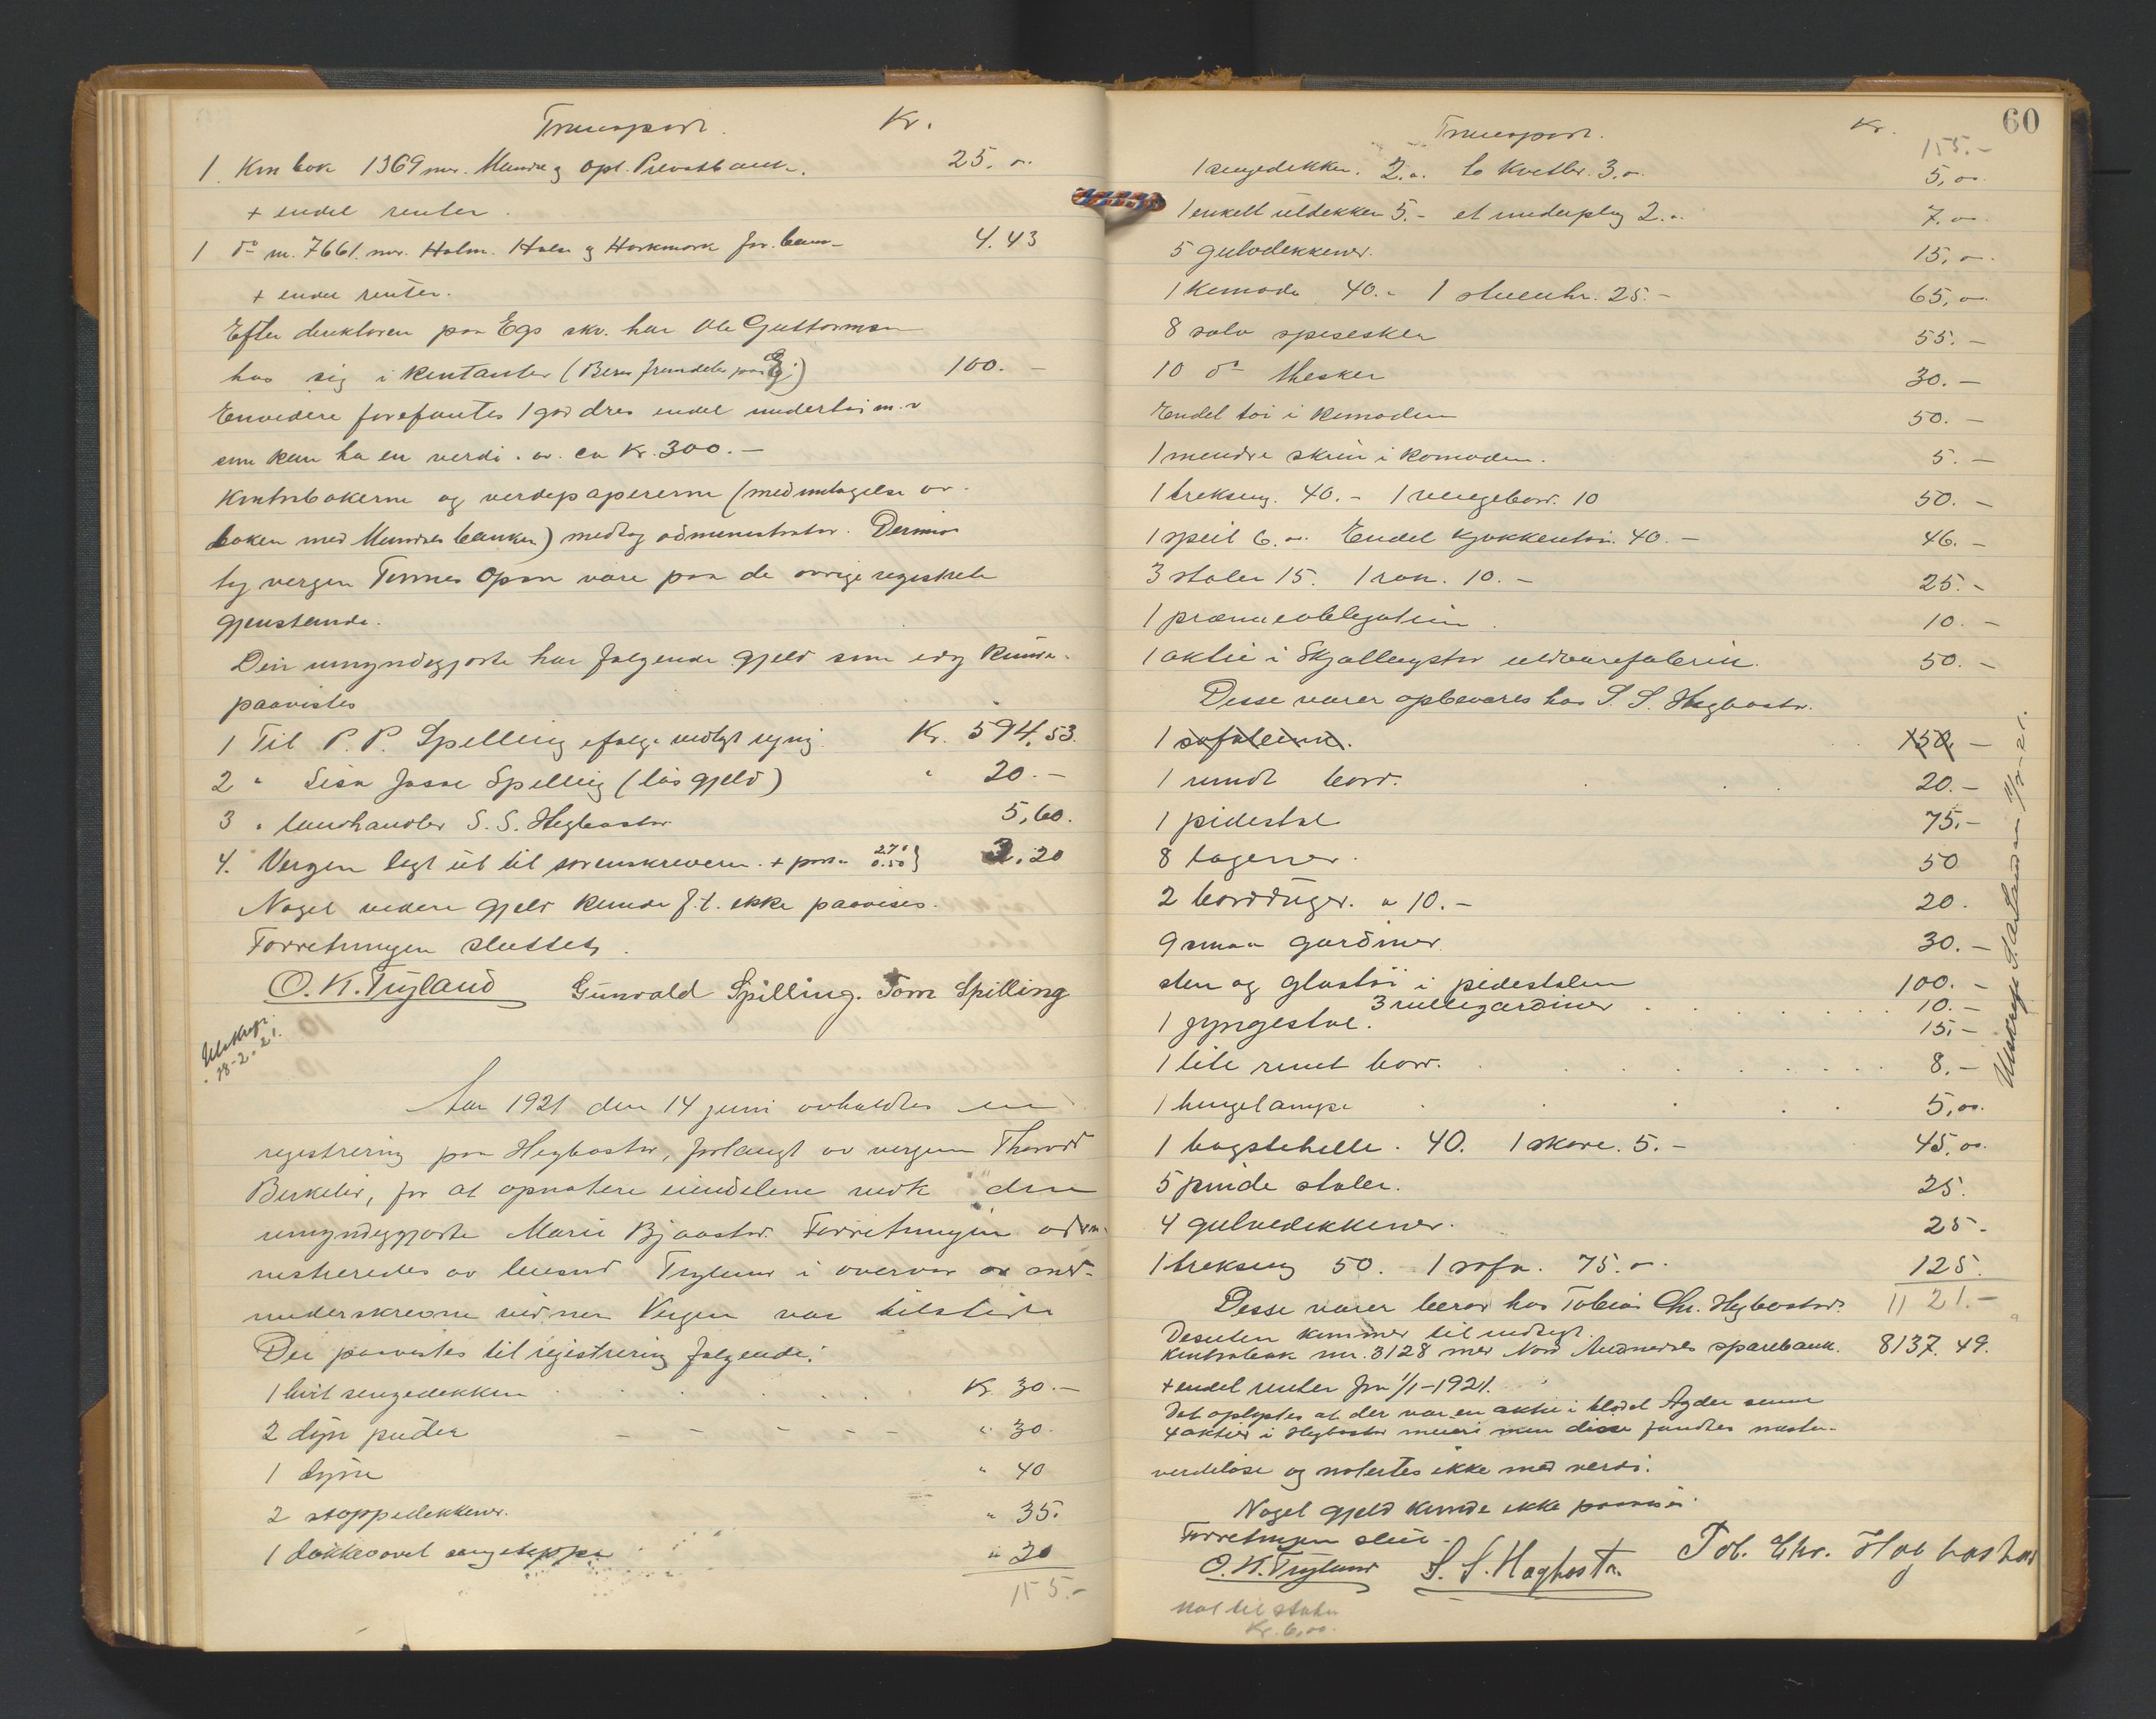 Transport. Kr.
1. Kon bok 1369 mr. Mandg opl. Privatbank. 25. 00
+ endel renter.
1 do m. 7661. mr. Holm. Halse g Harkmark for. bank 4.43
+ endel renter.
Efter direktoren paa Egs skr. har Ole Guttormsen
hos sig i kontanter (Beror fremdeles paa Eg) 100. -
Envidere forefantes 1 god dres endel undertøi m. v
som kan ha en verdi. av. ca Kr. 300. -
Kontrabøkerne og verdipapirerne (med undtagelse av
boken med Mandals banken) medtog administrator. Derimot
tog vergen Tønnes Opsn vare paa de øvrige registrerte
gjenstande.
Den umyndiggjorte har følgende gjeld som idag kunde
paavistes
1 Til P. P. Spelling ifølge vedlagt regning Kr. 594,53.
2 " Sisa Jasse Spelling (løs gjeld) " 20. -
3 " landhandler S. S. Hegbostad 5,60.
4. Vergen lagt ut til sorenskriveren + porto 2.70 0.50} 3,20
Noget videre gjeld kunde f. t. ikke paavises.
Forretningen sluttet
O. K. Tryland Gunvald Spilling. Tom Spilling
Utskrift
18-2-21.
Aar 1921 den 14 juni avholdtes en
registrering paa Hegbostad, forlangt av vergen Thorvald
Birkeli, for at opnotere eiendelene vedk den
umyndiggjorte Marie Bjaastad. Forretningen admi-
nistreredes av lensmd Tryland i overvær av med-
underskrevne vidner Vergen var tilstede
Der paavistes til registrering følgende:
1 hvit sengedekken Kr. 30. -
2 dyn puder " 30.
1 dyne " 40
2 stoppedekkener. " 35.
1 dobbeltvovet sengeteppe " 20
155.-
60
Transport. Kr. 155.-
1 sengedekken. 2.00 to Kvitler 3.00 5,00
1 enkelt uldekken 5. - et underplag 2.00 7,00
5 gulvdekkener. 15,00
1 Komode 40.- 1 stueuhr. 25. - 65,00
8 sølv spiseskeer 55. -
10 do theskeer 30. -
Endel tøi i Komoden 50. -
1 mindre skrin i komoden. 5. -
1 trekseng. 40. - 1 sengebord. 10 50. -
1 speil 6.00 Endel kjøkkentøi 40. - 46. -
3 stoler 15. 1 rok. 10. - 25. -
1 præmieobligation 10. -
1 aktie i Skjollegstad uldvarefabrik. 50. -
Desse varer opbevares hos S. S. Hegbostad.
1 sofateime. 150, -
1 rundt bord. 20. -
1 pidestal 75, -
8 lagener. 50
2 bordduger. a 10. - 20.
9 smaa gardiner. 30. -
sten og glastøi i pidestalen 100. -
3 rullegardiner 10. -
1 gyngestol. 15, -
1 lite rundt bord. 8. -
1 hengelampe 5,00
1 bagstehelle. 40. 1 skore. 5. - 45,00
5 pinde stoler. 25.
4 gulvedekkener. 25.
1 trekseng 50. 1 sofa. 75.00 125.
Desse varer beror hos Tobias Chr. Hegbostad. 1121. -
Desuten kommer til indtegt
Kontrabok nr. 3128 med Nord Audnedals sparebank. 8137. 49.
+ endel renter fra 1/1-1921.
Det oplystes at der var en aktie i bladet Agder samt
4 aktier i Hegbostad meieri men disse fandtes næsten
verdiløse og notertes ikke med verdi.
Noget gjeld kunde ikke paavises.
Forretningen slut.
O. K. Tryland S. S. Hægbostad Tob. Chr. Hægbostad
Not til staten
Kr. 6,00.